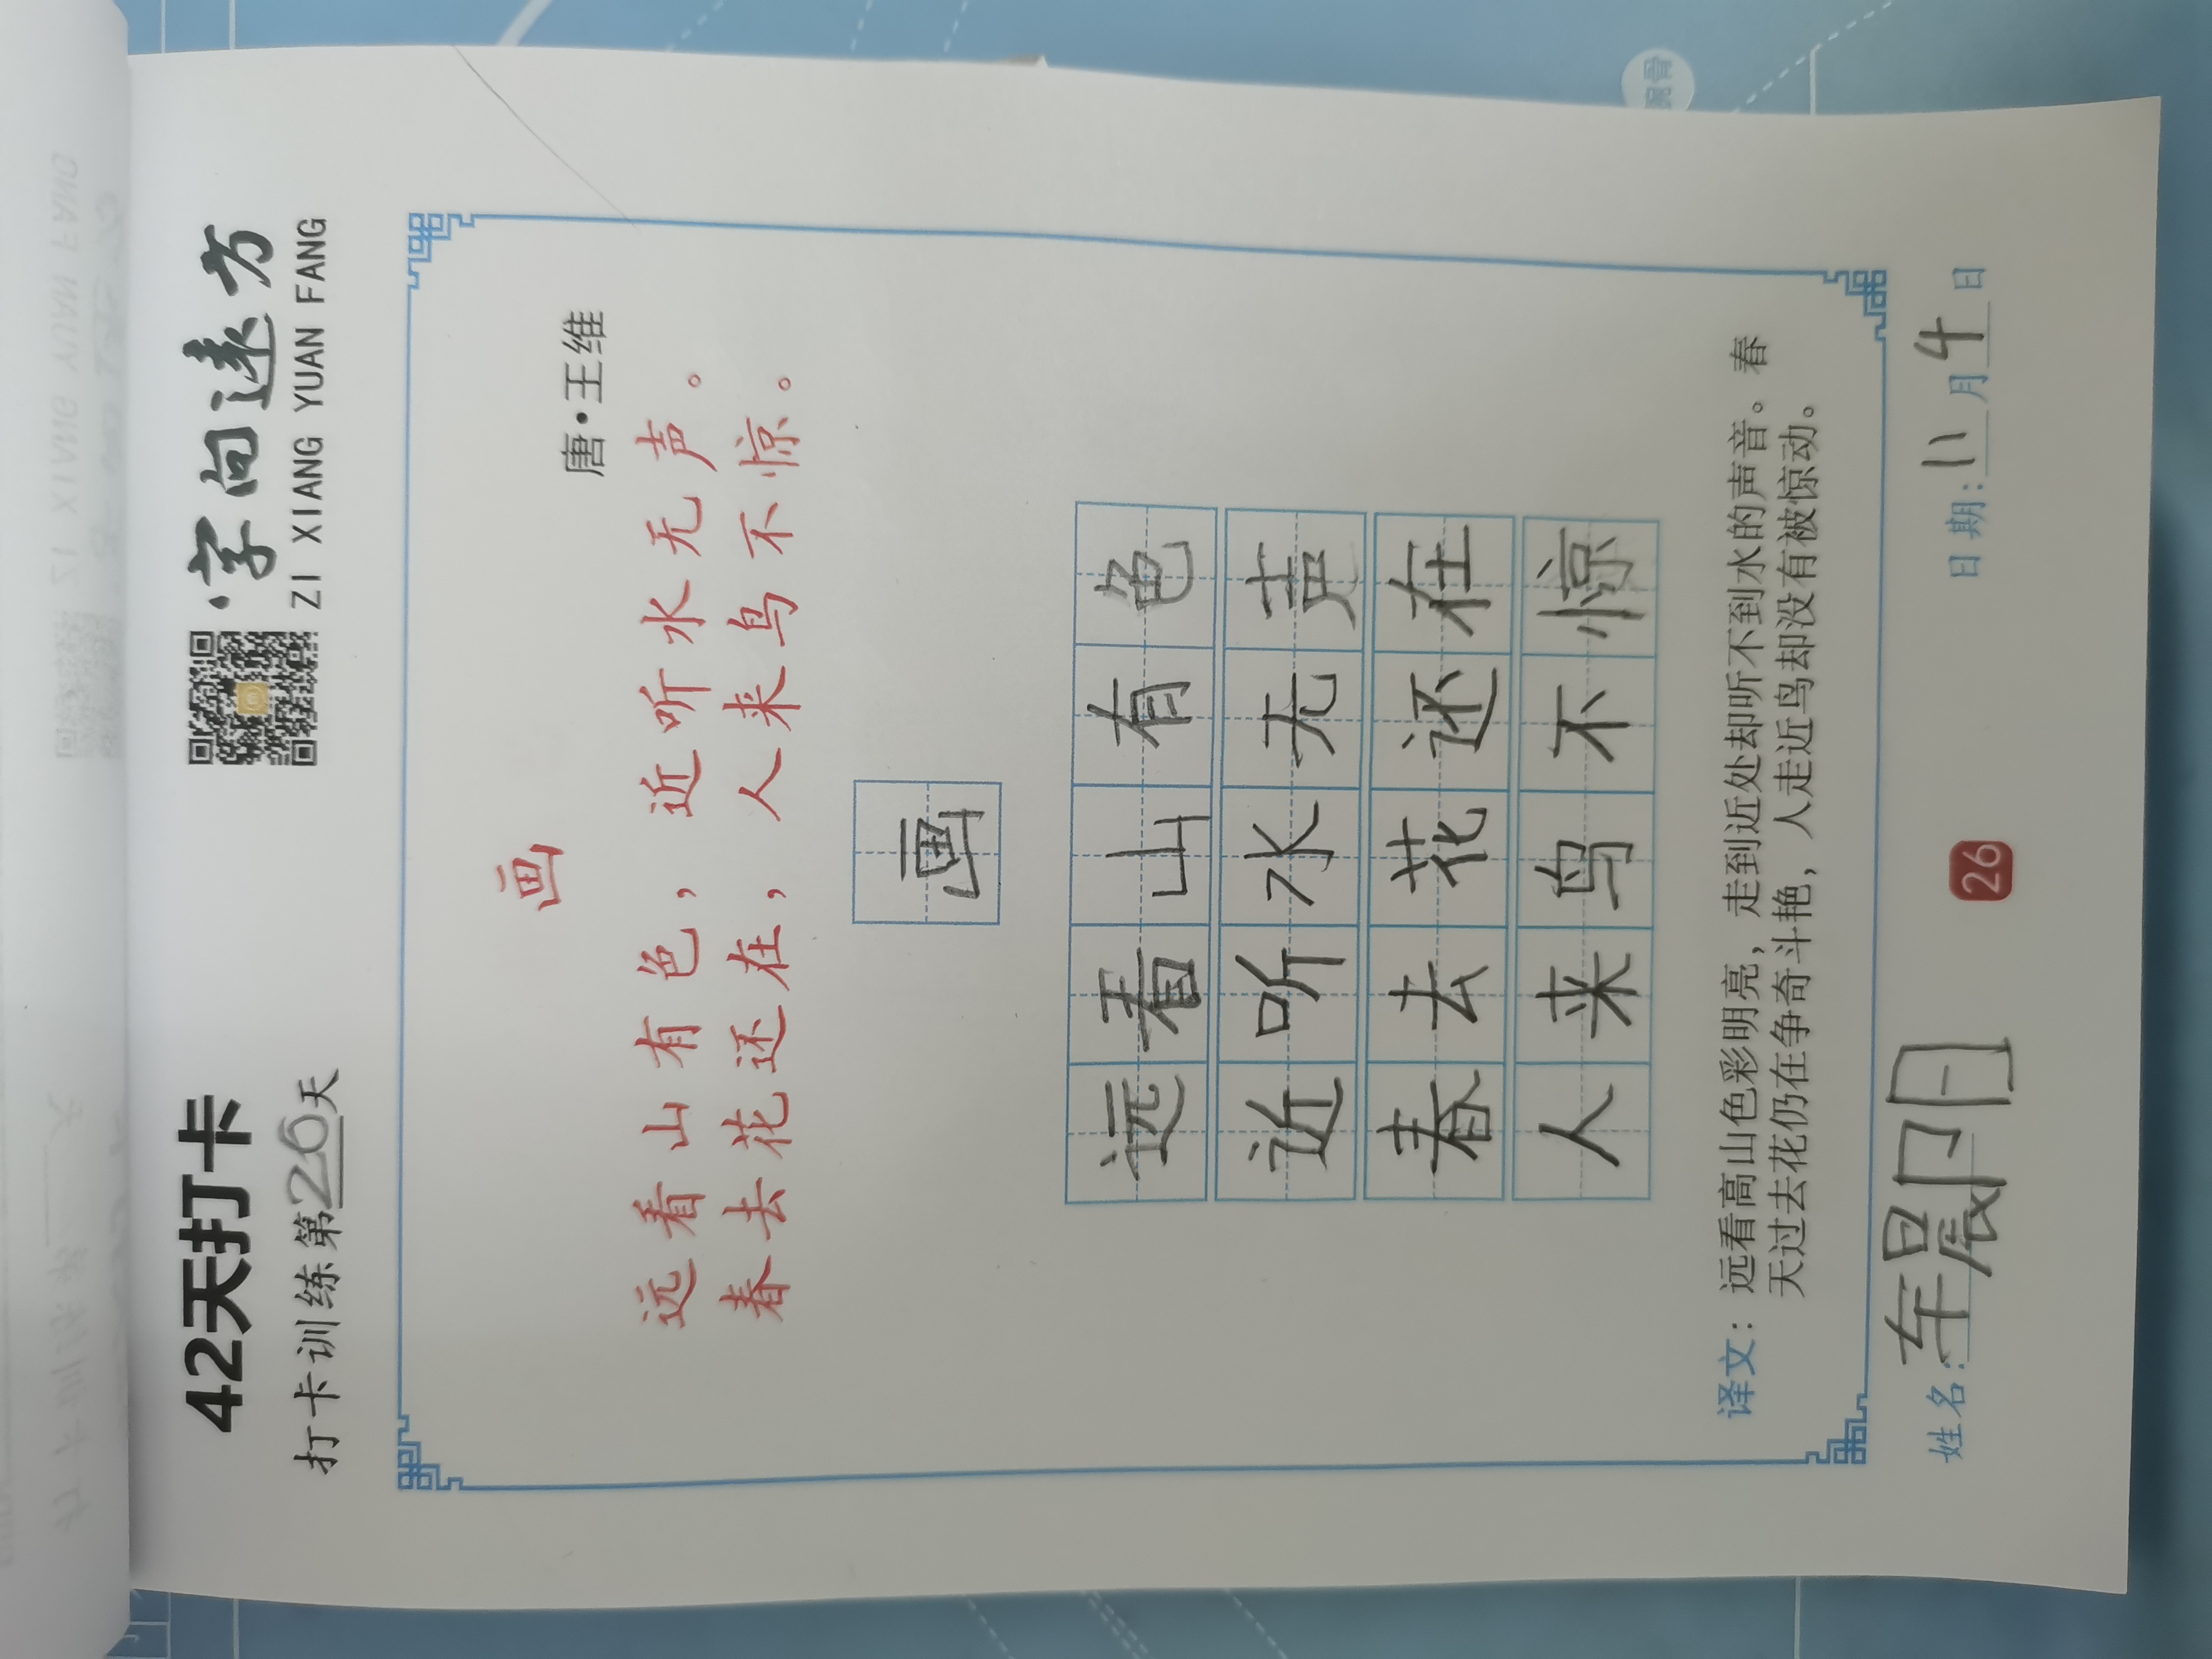 42天打卡
打卡训练第26天
字向远方
ZI XIANG YUAN FANG
画
唐·王维
远看山有色，近听水无声。
春去花还在，人来鸟不惊。
画
远看山有色
近听水无声
春去花还在
人来鸟不惊
译文：远看高山色彩明亮，走到近处却听不到水的声音。春
天过去花仍在争奇斗艳，人走近鸟却没有被惊动。
姓名：车晨阳
日期：11月4日
26